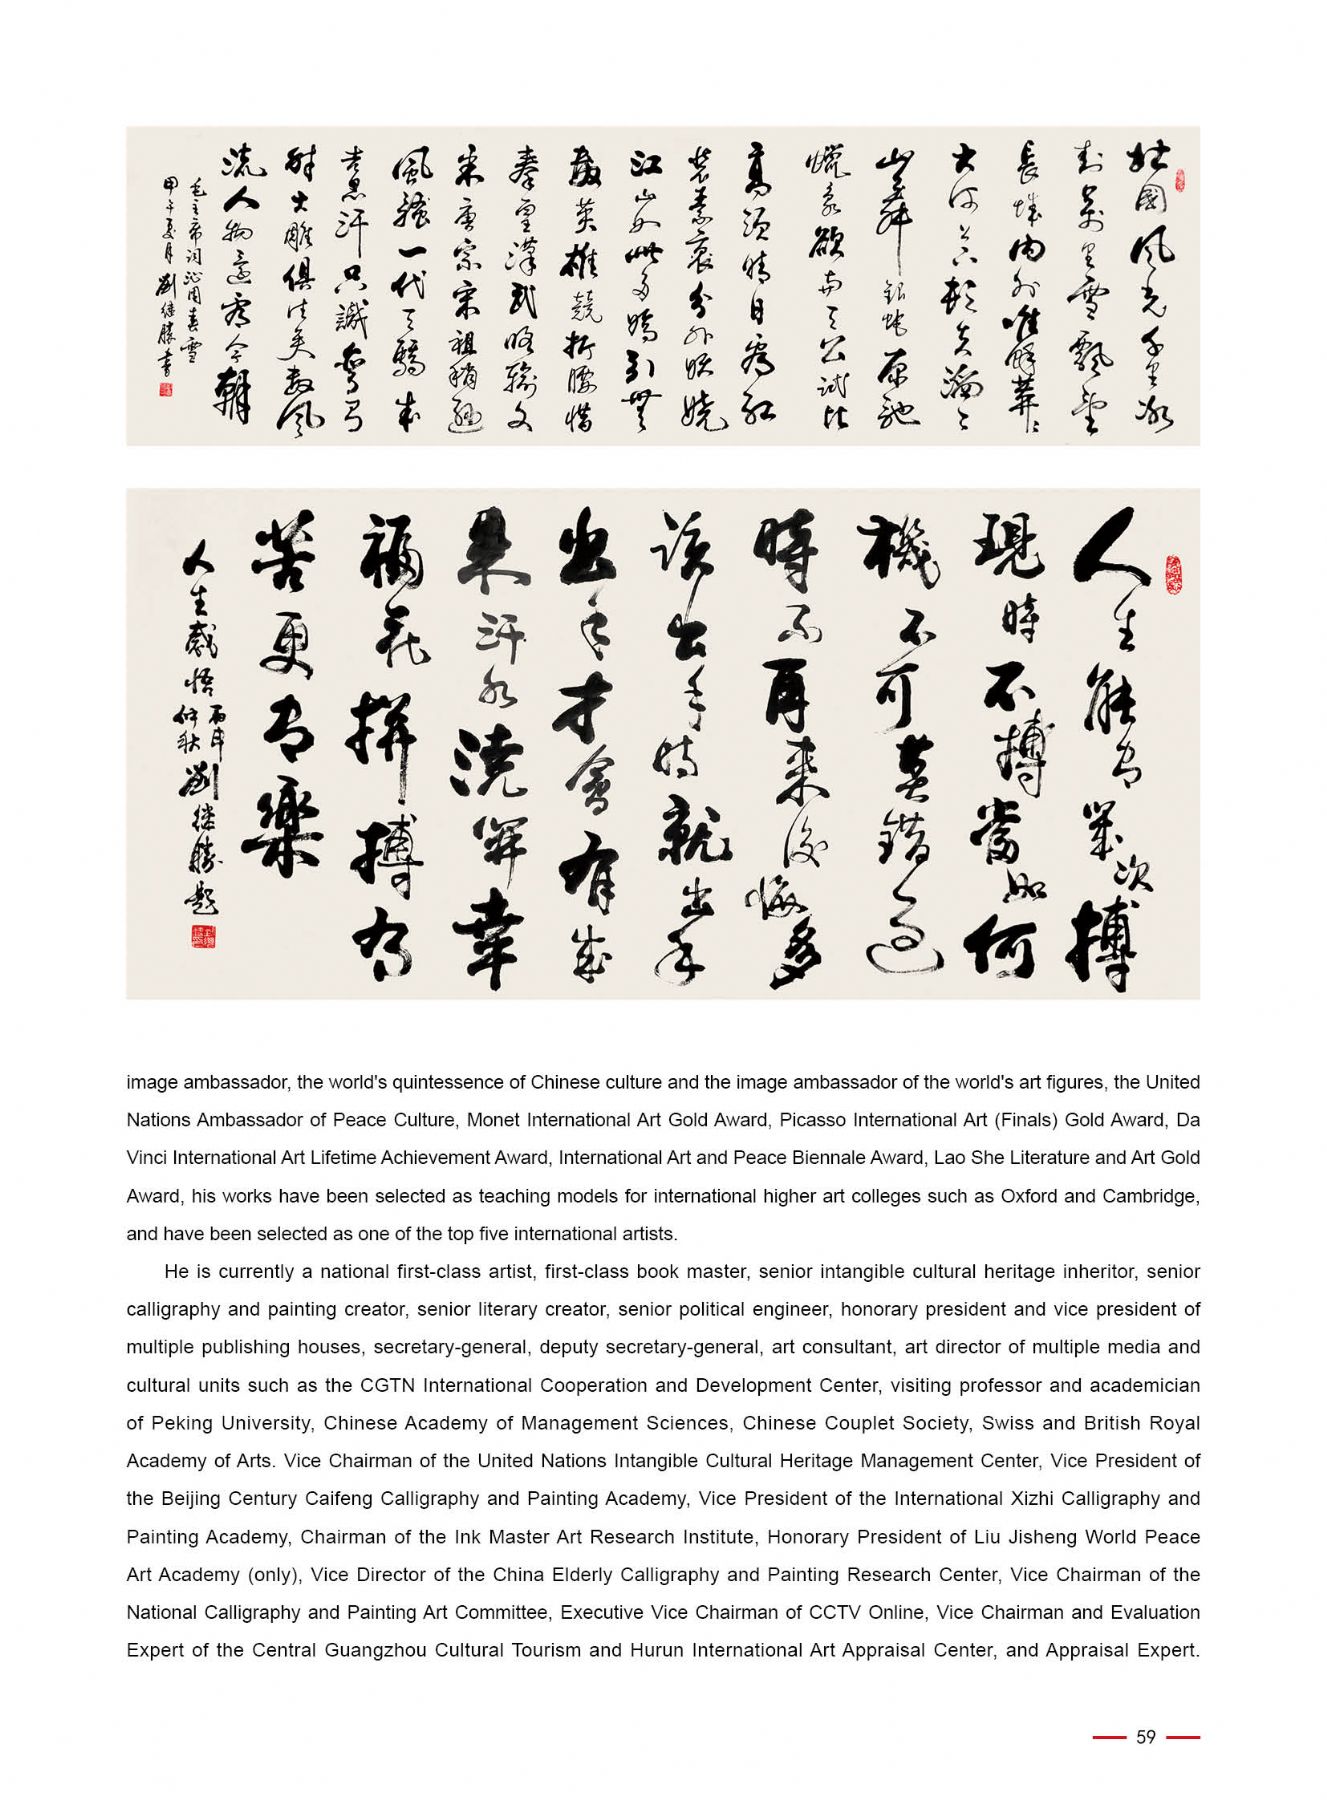 北國風光千里冰
封萬里雪飄望
長城內外唯餘莽〻
大河上下頓失滔〻
山舞銀蛇原馳
蠟象欲與天公試比
高須晴日看紅
裝素裹分外妖嬈
江山如此多嬌引無
數英雄競折腰惜
秦皇漢武略輸文
采唐宗宋祖稍遜
風騷一代天驕成
吉思汗只識彎弓
射大雕俱往矣數風
流人物還看今朝
毛主席词沁园春雪
甲午夏月劉继勝書
人生能有幾次搏
現時不搏當如何
機不可莫錯過
時不再來後悔多
該出手時就出手
出手才會有成
果汗水澆開幸
福花拼搏有
苦更有樂
人生感悟丙申
仲秋劉继勝题
image ambassador, the world's quintessence of Chinese culture and the image ambassador of the world's art figures, the United
Nations Ambassador of Peace Culture, Monet International Art Gold Award, Picasso International Art (Finals) Gold Award, Da
Vinci International Art Lifetime Achievement Award, International Art and Peace Biennale Award, Lao She Literature and Art Gold
Award, his works have been selected as teaching models for international higher art colleges such as Oxford and Cambridge,
and have been selected as one of the top five international artists.
He is currently a national first-class artist, first-class book master, senior intangible cultural heritage inheritor, senior
calligraphy and painting creator, senior literary creator, senior political engineer, honorary president and vice president of
multiple publishing houses, secretary-general, deputy secretary-general, art consultant, art director of multiple media and
cultural units such as the CGTN International Cooperation and Development Center, visiting professor and academician
of Peking University, Chinese Academy of Management Sciences, Chinese Couplet Society, Swiss and British Royal
Academy of Arts. Vice Chairman of the United Nations Intangible Cultural Heritage Management Center, Vice President of
the Beijing Century Caifeng Calligraphy and Painting Academy, Vice President of the International Xizhi Calligraphy and
Painting Academy, Chairman of the Ink Master Art Research Institute, Honorary President of Liu Jisheng World Peace
Art Academy (only), Vice Director of the China Elderly Calligraphy and Painting Research Center, Vice Chairman of the
National Calligraphy and Painting Art Committee, Executive Vice Chairman of CCTV Online, Vice Chairman and Evaluation
Expert of the Central Guangzhou Cultural Tourism and Hurun International Art Appraisal Center, and Appraisal Expert.
59